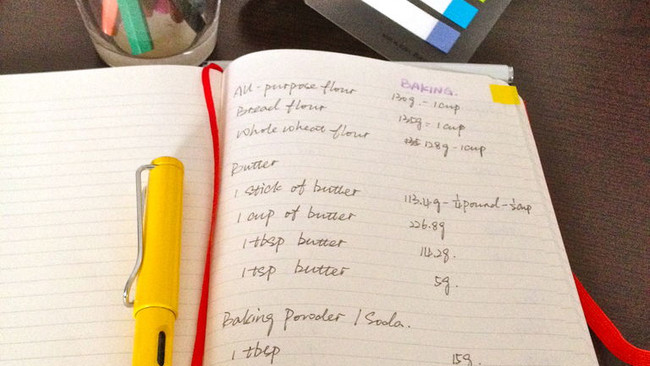 BAKING.
All-purpose flour 130g - 1 cup
Bread flour 135g - 1 cup
whole wheat flour 128g - 1 cup
Butter
1 stick of butter 113.4g - ¼ pound - ½ cup
1 cup of butter 226.8g
1 tbsp butter 14.2g.
1 tsp butter 5g.
Baking Powder / Soda.
1 tbsp 15g.